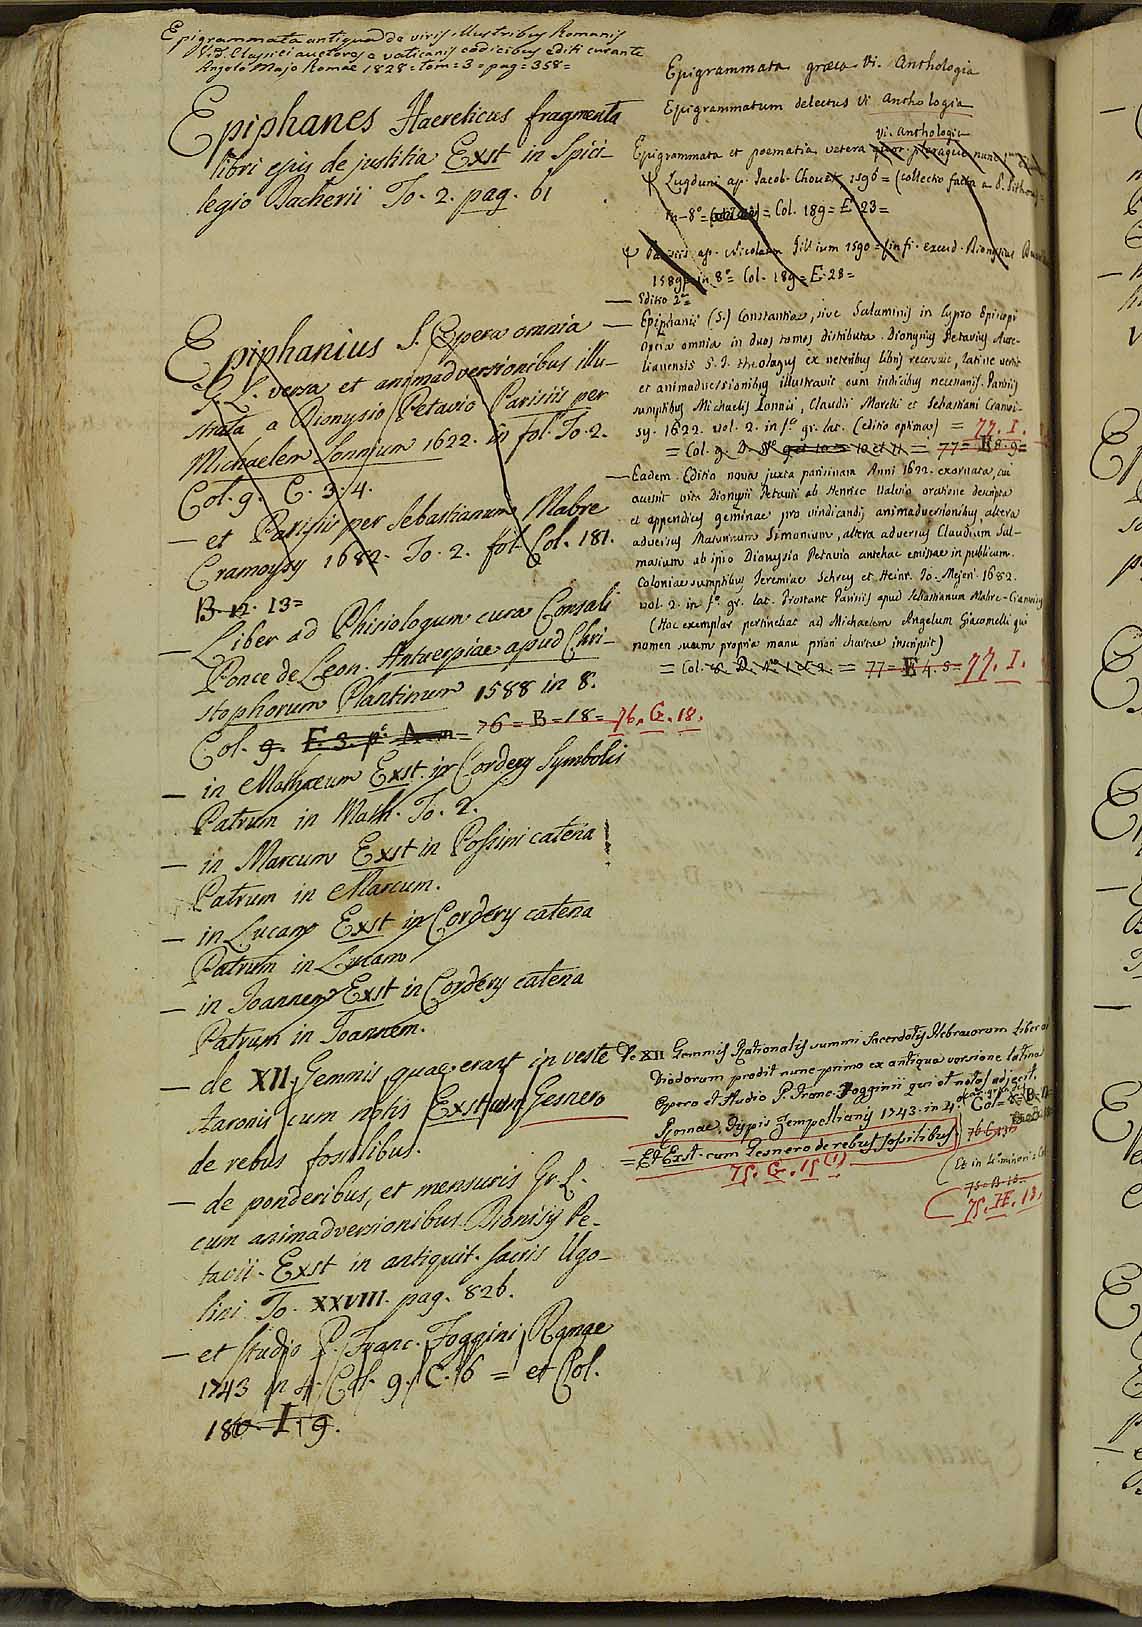 Epigrammata antiqua de viris illustribus Romanis
Vid. Classici auctores e vaticanis codicibus editi curante
Angelo Majo Romae 1828 = tom = 3 = pag = 358 =
Epiphanes Haereticus fragmenta
libri ejus de justitia Exst in Spici-
legio Dacherii To. 2. pag. 61
Epiphanius S. Opera omnia
G. L. versa et animadversionibus illu-
strata a Dionysio Petavio Parisiis per
Michaelem Sonnium 1622. in fol. To. 2.
Col. 9. C. 3. 4.
— et Parisiis per Sebastianum Mabre
Cramoysy 1682. To. 2. fol. Col. 181.
B. 12. 13=
— Liber ad Phisiologum cura Consali
Ponce de Leon. Antuerpiae apud Chri-
stophorum Plantinum 1588 in 8.
Col. 9. F. 3. = 76 = B = 18 = 76. G. 18.
— in Mathaeum Exst. in Cordery Symbolis
Patrum in Math. To. 2.
— in Marcum Exst in Possini catena
Patrum in Marcum.
— in Lucam Exst in Cordery catena
Patrum in Lucam
— in Joannem Exst in Cordery catena
Patrum in Joannem.
— de XII. Gemmis quae erant in veste
Aaronis cum notis Exst cum Gesnero
de rebus fossilibus.
— de ponderibus, et mensuris Gr. L.
cum animadversionibus Dionisy Pe-
tavii. Exst in antiquit. sacris Ugo-
lini To. XXVIII. pag. 826.
— et studio P. Franc. Foggini Romae
1743 in 4. Col. 9. C. 6 = et Col.
180. I. 9.
Epigrammata graeca Vi. Anthologia
Epigrammatum delectus Vi Anthologia
Vi. Anthologia
Epigrammata et poematia vetera quor. pleraque nunc
Lugduni ap. Jacob. Chouet 1596 = (collectio facta a P. Pithoeo) =
in-8° = Col. 189 = E 23 =
Parisiis ap. Nicolaum Gillium 1590 = (in fi. excud. Dionysius
1589) in 8° = Col. 189 = E. 28 =
— Editio 2a =
— Epiphanii (S.) Constantiae, sive Salaminis in Cypro Episcopi
Opera omnia in duos tomos distributa. Dionysius Petavius Aure-
lianensis S. J. theologus ex veteribus libris recensuit, latine vertit
et animadversionibus illustravit, cum indicibus necessariis. Parisiis
sumptibus Michaelis Sonnii, Claudii Morelli et Sebastiani Cramoi-
sy. 1622. vol. 2. in f.° gr. lat. (editio optima) = 77. I.
= Col. 9. D. N° 10 et 11 = 77 = E 8. 9 =
— Eadem. Editio nova juxta parisinam Anni 1622. exornata, cui
accessit vita Dionysii Petavii ab Henrico Valesio oratione descripta
et appendices geminae pro vindicandis animadversionibus, altera
adversus Maturinum Simonium, altera adversus Claudium Sal-
masium ab ipso Dionysio Petavio antehac emissae in publicum.
Coloniae sumptibus Jeremiae Schrey et Heinr. Jo. Mejeri 1682.
vol. 2. in f.° gr. lat. Prostant Parisiis apud Sebastianum Mabre-Cramoisy
(Hoc exemplar pertinebat ad Michaelem Angelum Giacomelli qui
nomen suum propria manu priori chartae inscripsit)
= Col. 8. D. N° 1 et 2. = 77 = E 4. 5 = 77. I.
De XII Gemmis Rationalis summi Sacerdotis Hebraeorum Liber
Diodorum prodit nunc primo ex antiqua versione latina
Opera et studio P. Franc. Fogginii qui et notas adjecit.
Romae. Typis Zempellianis 1743. in 4.° Col = 8 = B.
= Et Exst. cum Gesnero de rebus fossilibus. 76
75. G. 15 (1)
(Et in 4° minori
75 = B 18 =
75. H. 13.